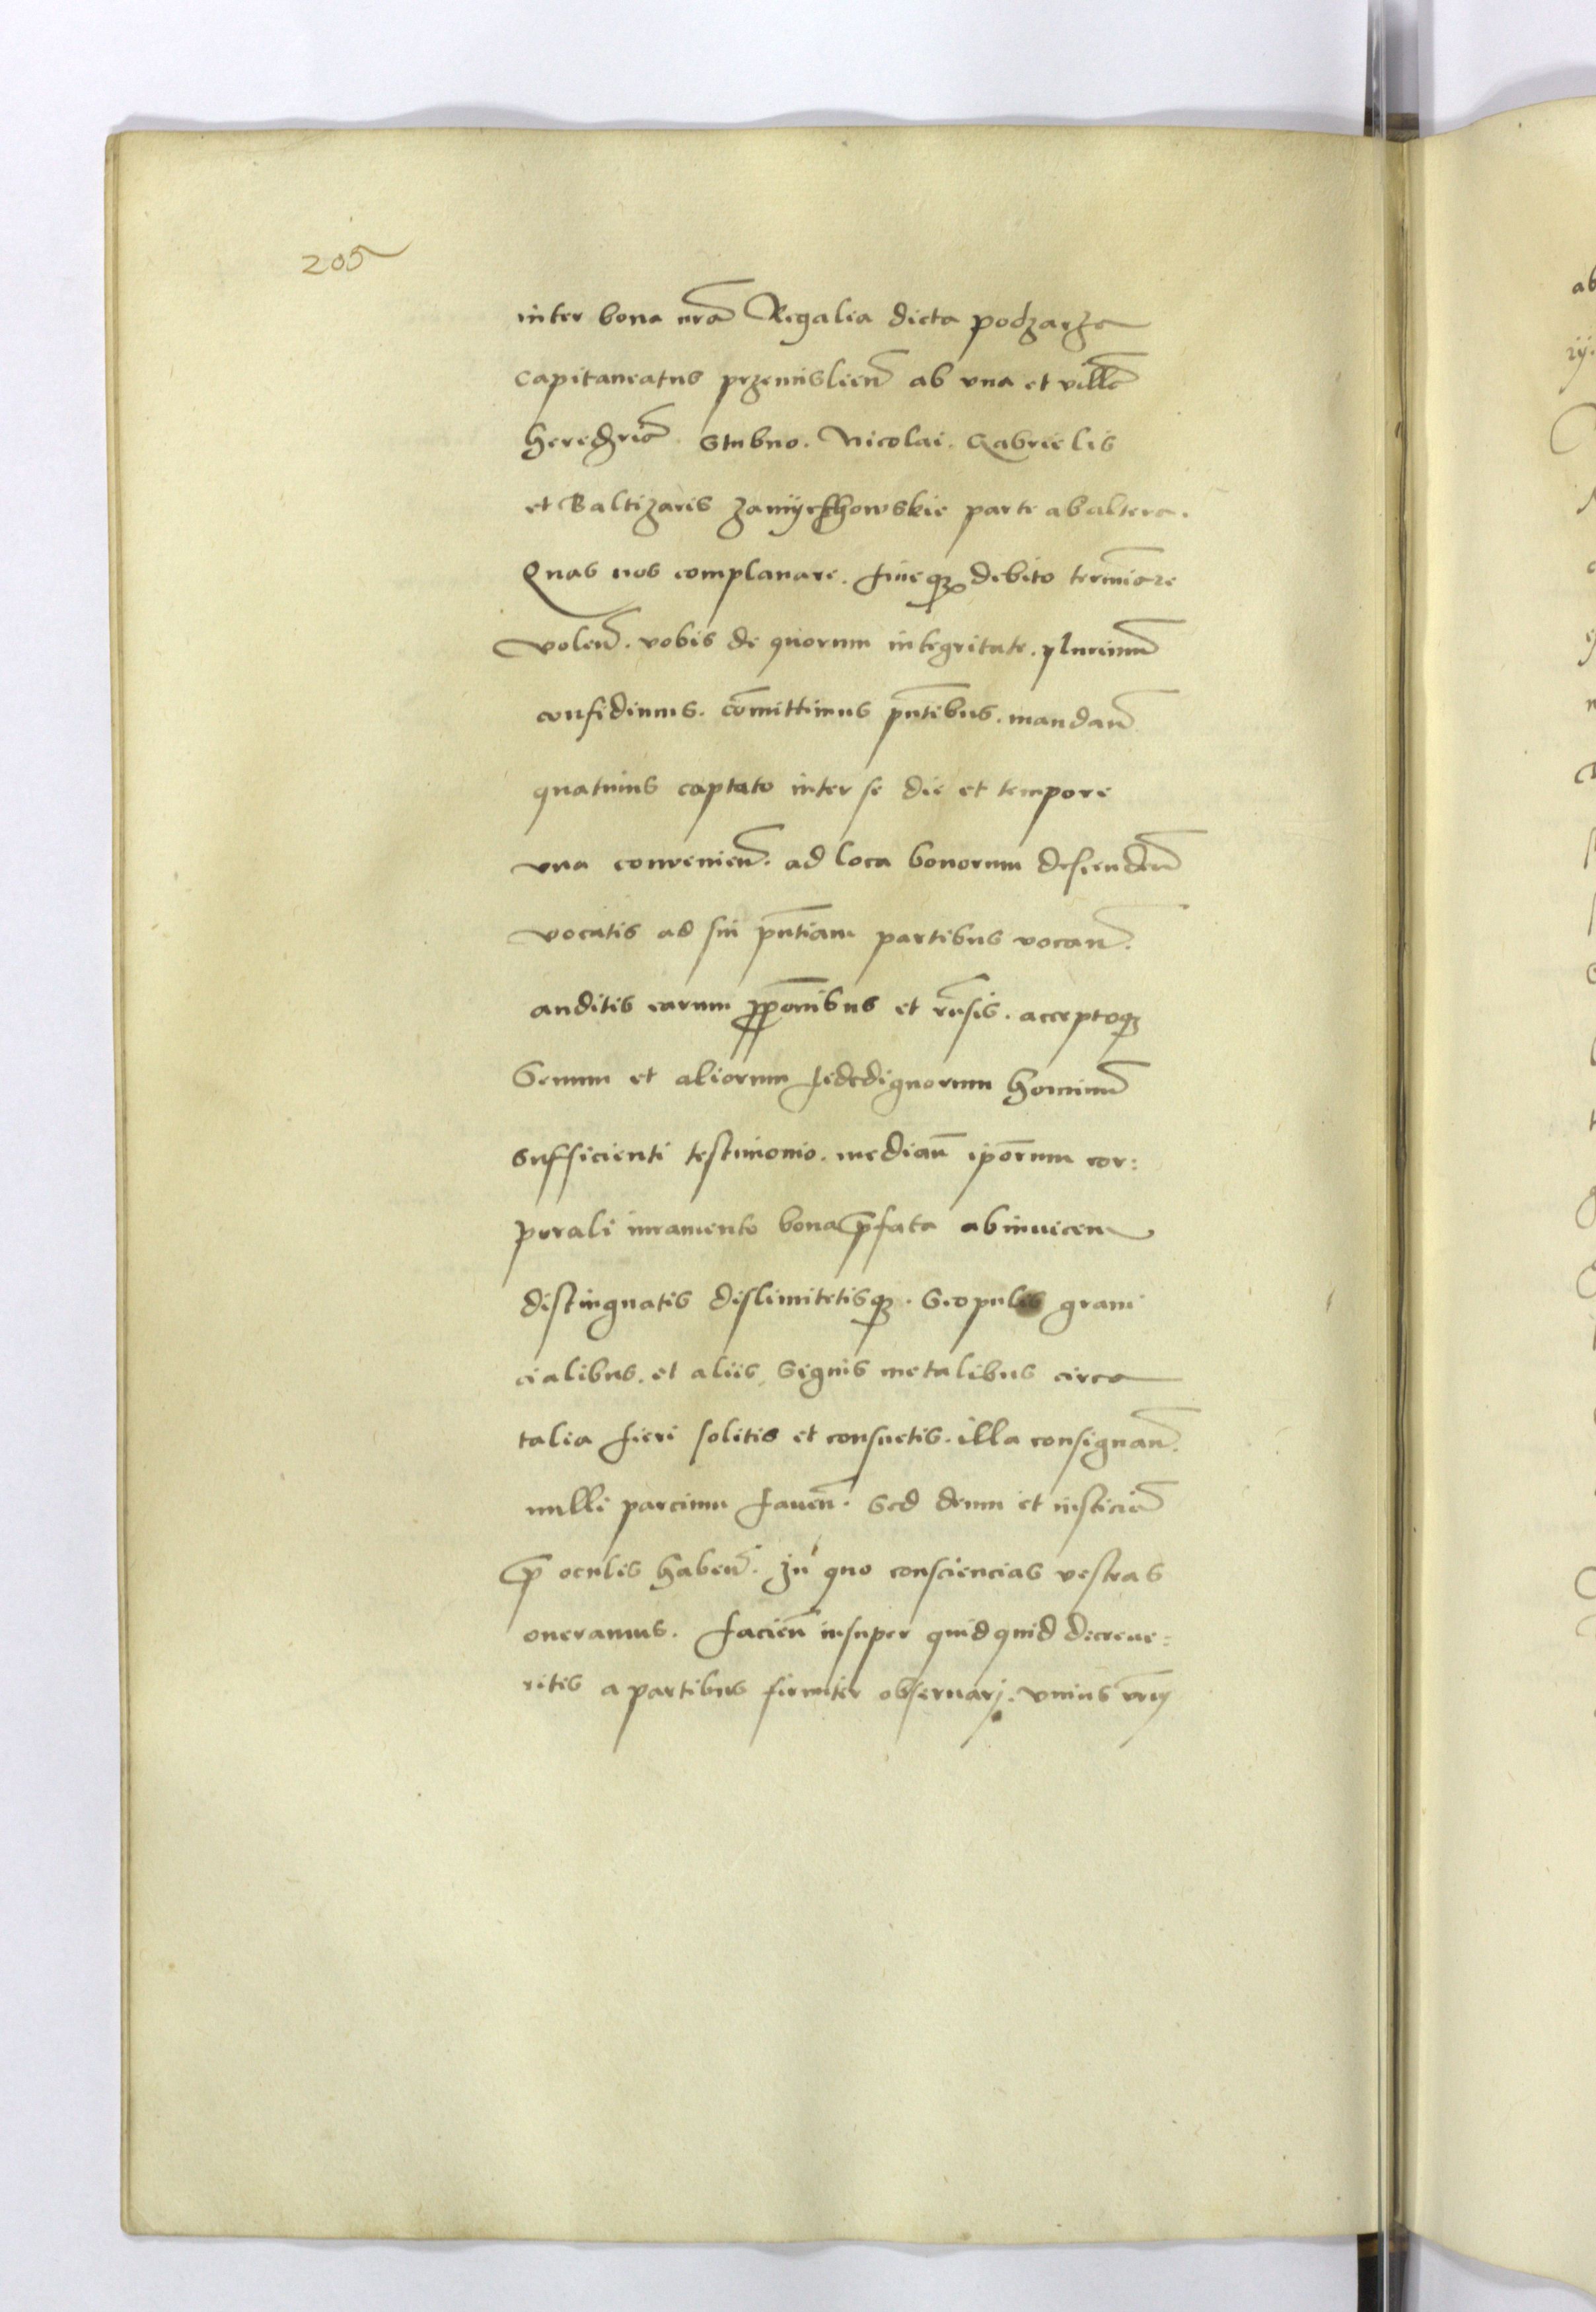 205
inter bona nr̃a Regalia dicta podzarze
Capitaneatus przemislien̄ ab vna et villā
heređriā Stubno. Nicolai. Gabrielis
et Baltizaris zamÿechowskie parte ab altera.
Quas nos complanare. fineqꝫ debito termiare
volen̄. vobis de quorum integritate. plurimū
confidimus. com̄ittimus pn̄tibus. mandan̄
quatinus captato inter se die et tempore
vna convenien̄. ad loca bonorum descenden̄
vocatis ad sui pn̄tiam partibus vocan̄.
auditis earum ꝓpon̄ibus et rn̄sis. acceptoqꝫ
Senum et aliorum fidedignorum hominū
sufficienti testimonio. median̄ ip̄orum cor:
porali iuramento bona p̄fata abinuicem
distinguatis dislimitetisqꝫ. Scopulis grani
cialibus. et aliis signis metalibus circa
talia fieri solitis et consuetis. illa consignan̄.
nulli parcium fauen̄. Sed deum et iusticiā
p̄ oculis haben̄. In quo consciencias vestras
oneramus. facien̄ insuper quidquid decreue:
ritis a partibus firmiter obseruarj. vnius vr̄m